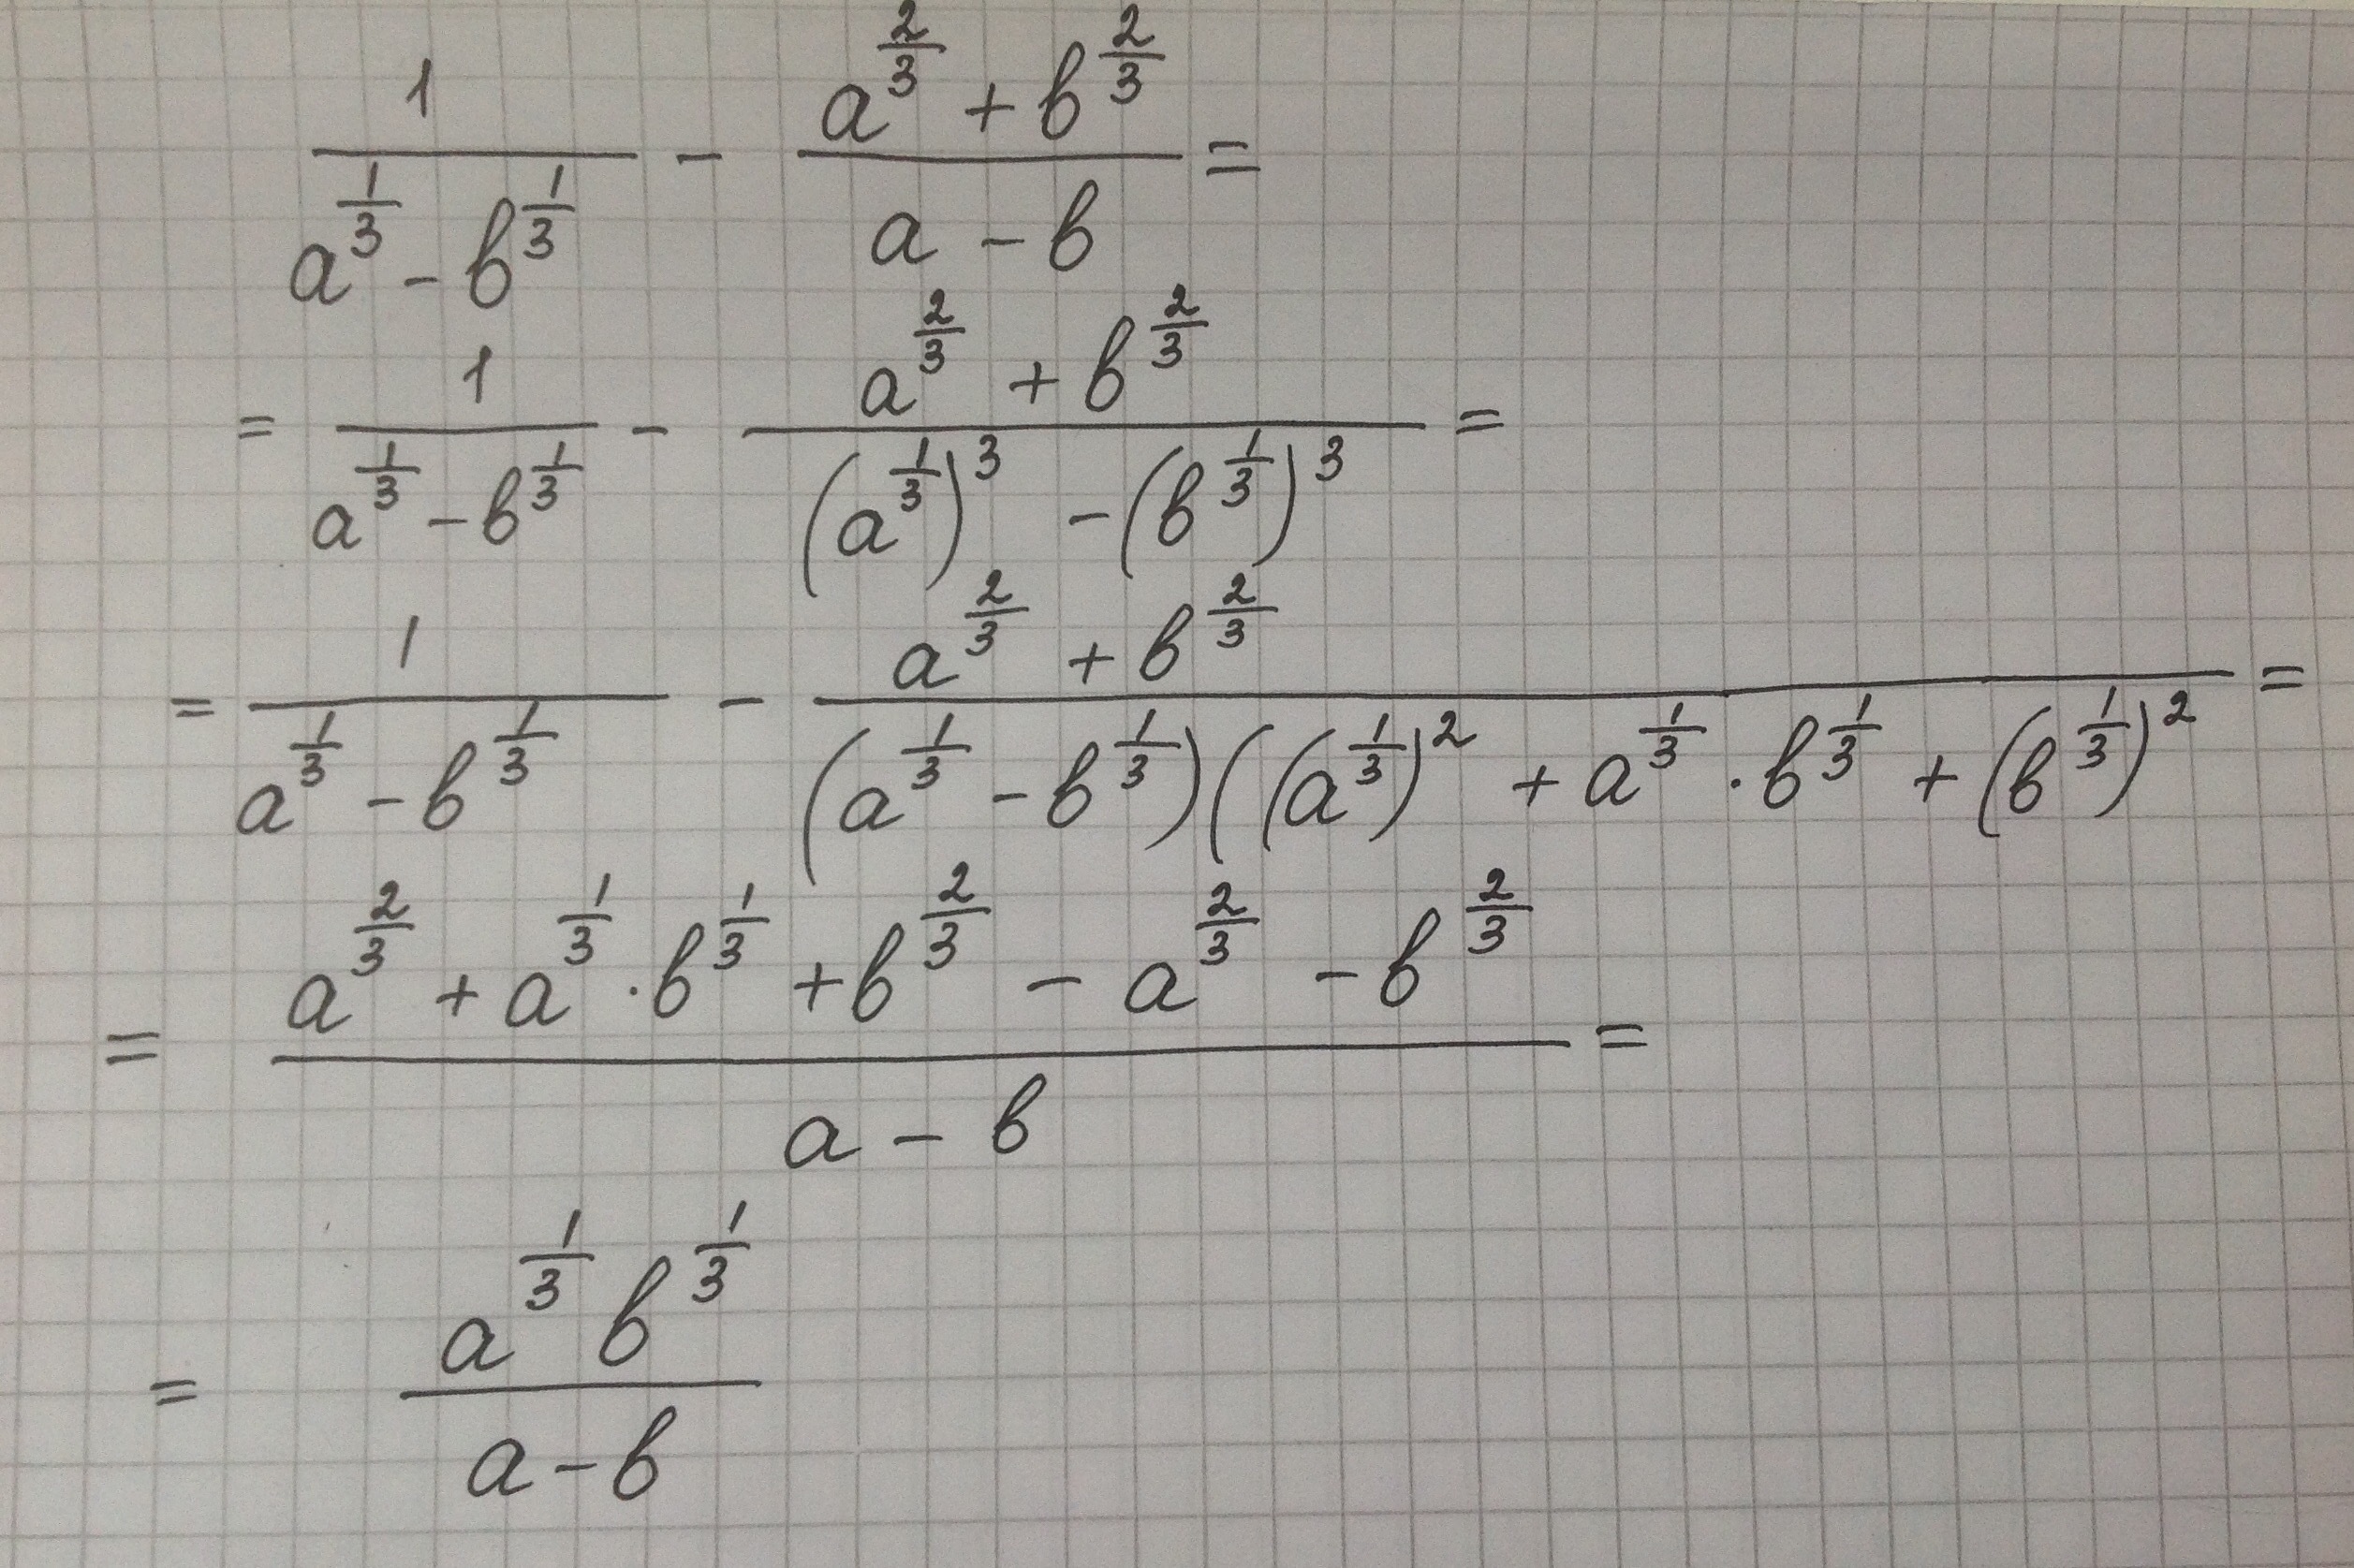 \frac{1}{a^{\frac{1}{3}} - b^{\frac{1}{3}}} - \frac{a^{\frac{2}{3}} + b^{\frac{2}{3}}}{a - b} =
= \frac{1}{a^{\frac{1}{3}} - b^{\frac{1}{3}}} - \frac{a^{\frac{2}{3}} + b^{\frac{2}{3}}}{(a^{\frac{1}{3}})^3 - (b^{\frac{1}{3}})^3} =
= \frac{1}{a^{\frac{1}{3}} - b^{\frac{1}{3}}} - \frac{a^{\frac{2}{3}} + b^{\frac{2}{3}}}{(a^{\frac{1}{3}} - b^{\frac{1}{3}})((a^{\frac{1}{3}})^2 + a^{\frac{1}{3}} \cdot b^{\frac{1}{3}} + (b^{\frac{1}{3}})^2} =
= \frac{a^{\frac{2}{3}} + a^{\frac{1}{3}} \cdot b^{\frac{1}{3}} + b^{\frac{2}{3}} - a^{\frac{2}{3}} - b^{\frac{2}{3}}}{a - b} =
= \frac{a^{\frac{1}{3}} b^{\frac{1}{3}}}{a - b}